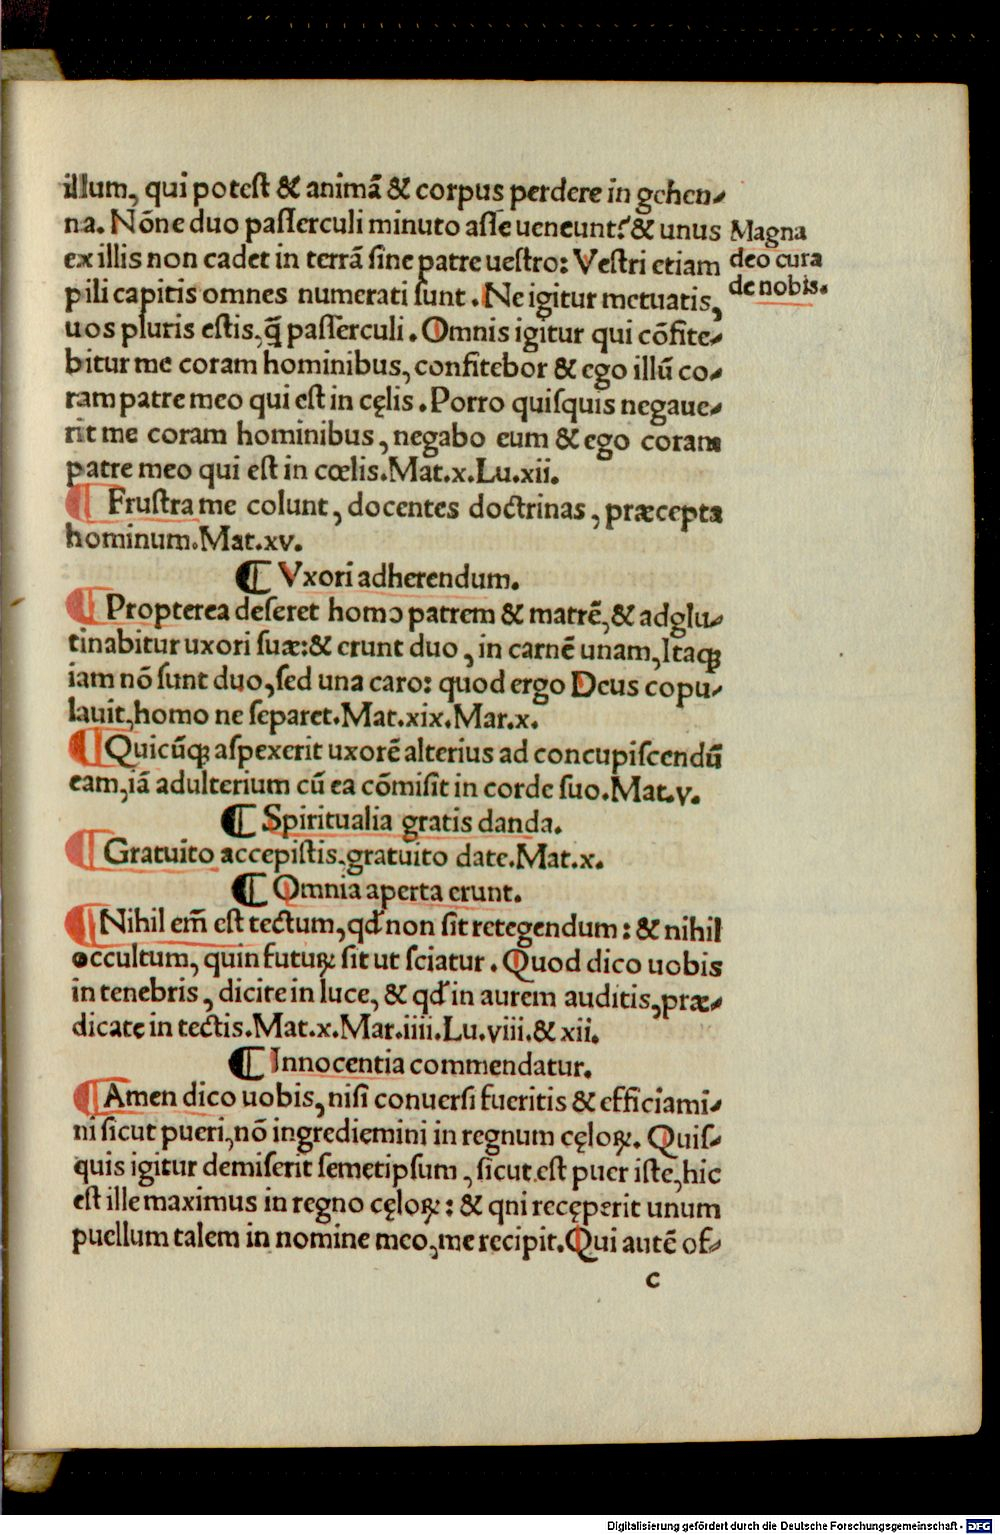 illum, qui poteſt & animã & corpus perdere in gehen⸗
na. Nõne duo paſſerculi minuto aſſe ueneunt? & unus
ex illis non cadet in terrã ſine patre ueſtro: Veſtri etiam
pili capitis omnes numerati ſunt. Ne igitur metuatis,
uos pluris eſtis, q̃ paſſerculi. Omnis igitur qui cõfite⸗
bitur me coram hominibus, confitebor & ego illũ co⸗
ram patre meo qui eſt in cęlis. Porro quiſquis negaue⸗
rit me coram hominibus, negabo eum & ego coram
patre meo qui eſt in cœlis. Mat.x. Lu.xii.
Magna
deo cura
de nobis.
¶ Fruſtra me colunt, docentes doctrinas, præcepta
hominum. Mat.xv.
¶ Vxori adherendum.
¶ Propterea deſeret homo patrem & matrẽ, & adglu⸗
tinabitur uxori ſuæ: & erunt duo, in carnẽ unam, Itaqꝫ
iam nõ ſunt duo, ſed una caro: quod ergo Deus copu⸗
lauit, homo ne ſeparet. Mat.xix. Mar.x.
¶ Quicũqꝫ aſpexerit uxorẽ alterius ad concupiſcendũ
eam, iã adulterium cũ ea cõmiſit in corde ſuo. Mat.v.
¶ Spiritualia gratis danda.
¶ Gratuito accepiſtis, gratuito date. Mat.x.
¶ Omnia aperta erunt.
¶ Nihil em̃ eſt tectum, qđ non ſit retegendum: & nihil
occultum, quin futuꝝ ſit ut ſciatur. Quod dico uobis
in tenebris, dicite in luce, & qđ in aurem auditis, præ⸗
dicate in tectis. Mat.x. Mar.iiii. Lu.viii. & xii.
¶ Innocentia commendatur.
¶ Amen dico uobis, niſi conuerſi fueritis & efficiami⸗
ni ſicut pueri, nõ ingrediemini in regnum cęloꝝ. Quiſ⸗
quis igitur demiſerit ſemetipſum, ſicut eſt puer iſte, hic
eſt ille maximus in regno cęloꝝ: & qni recęperit unum
puellum talem in nomine meo, me recipit. Qui autẽ of⸗
c
Digitalisierung gefördert durch die Deutsche Forschungsgemeinschaft - DFG